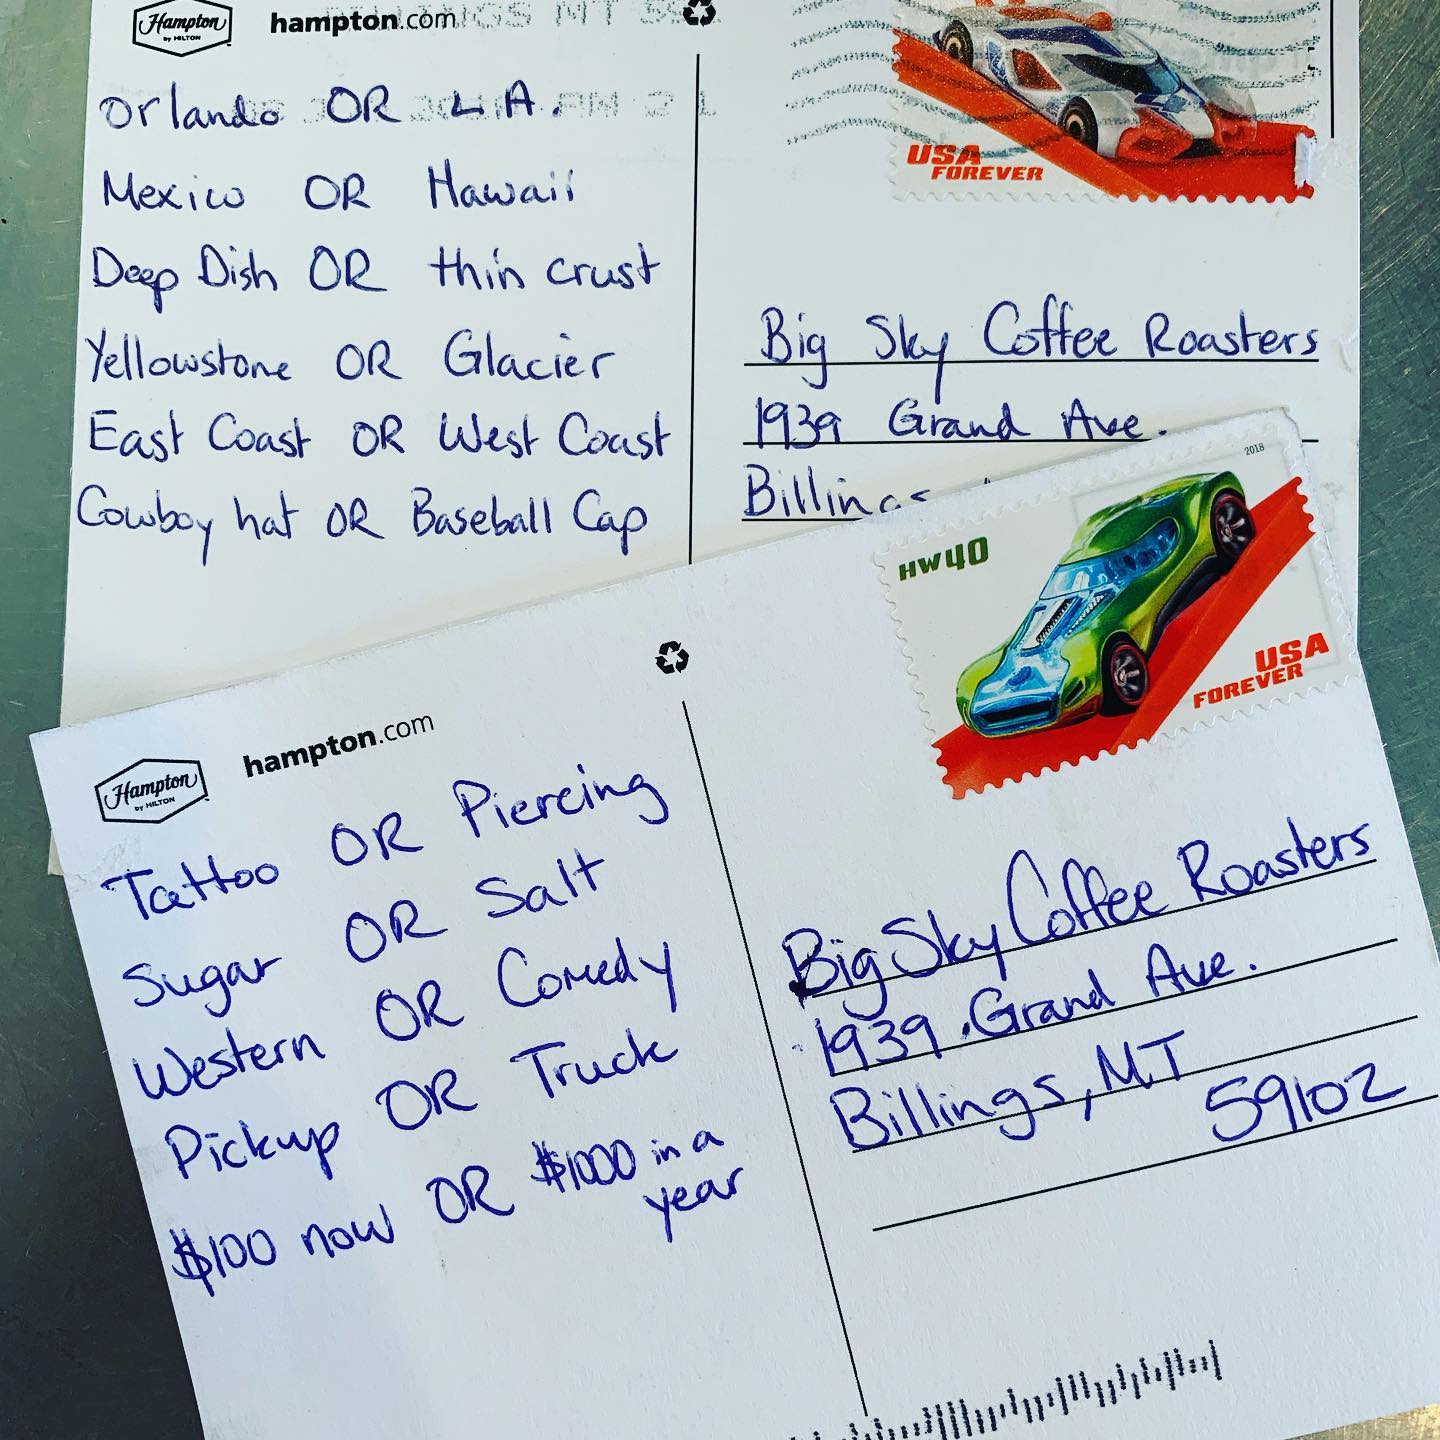 Hampton
by HILTON
hampton.com
BILLINGS MT 59
PM 2 L
Orlando OR L.A.
Mexico OR Hawaii
Deep Dish OR thin crust
Yellowstone OR Glacier
East Coast OR West Coast
Cowboy hat OR Baseball Cap
USA
FOREVER
Big Sky Coffee Roasters
1939 Grand Ave.
Billings
Hampton
by HILTON
hampton.com
Tattoo OR Piercing
Sugar OR Salt
Western OR Comedy
Pickup OR Truck
$100 now OR $1000 in a
year
2018
HW40
USA
FOREVER
Big Sky Coffee Roasters
1939 Grand Ave.
Billings, MT
59102